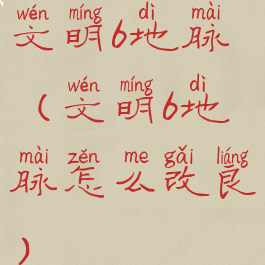 wén míng dì mài
文明6地脉
wén míng dì
(文明6地
mài zěn me gǎi liáng
脉怎么改良
)